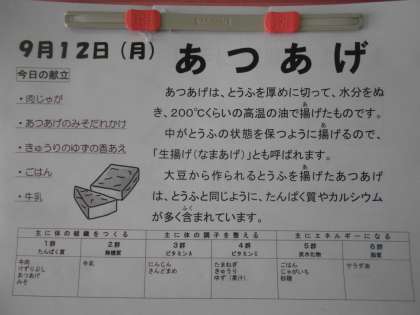 9月12日（月）
あつあげ
今日の献立
・肉じゃが
・あつあげのみそだれかけ
・きゅうりのゆずの香あえ
・ごはん
・牛乳
あつあげは、とうふを厚めに切って、水分をぬ
き、200℃くらいの高温の油で揚げたものです。
中がとうふの状態を保つように揚げるので、
「生揚げ（なまあげ）」とも呼ばれます。
大豆から作られるとうふを揚げたあつあげ
は、とうふと同じように、たんぱく質やカルシウム
が多く含まれています。
主に体の組織をつくる 主に体の調子を整える 主にエネルギーになる
1群 2群 3群 4群 5群 6群
たんぱく質 無機質 ビタミンA ビタミンC 炭水化物 脂質
牛肉 牛乳 にんじん たまねぎ ごはん サラダ油
けずりぶし さんどまめ きゅうり じゃがいも
あつあげ ゆず（果汁） 砂糖
みそ